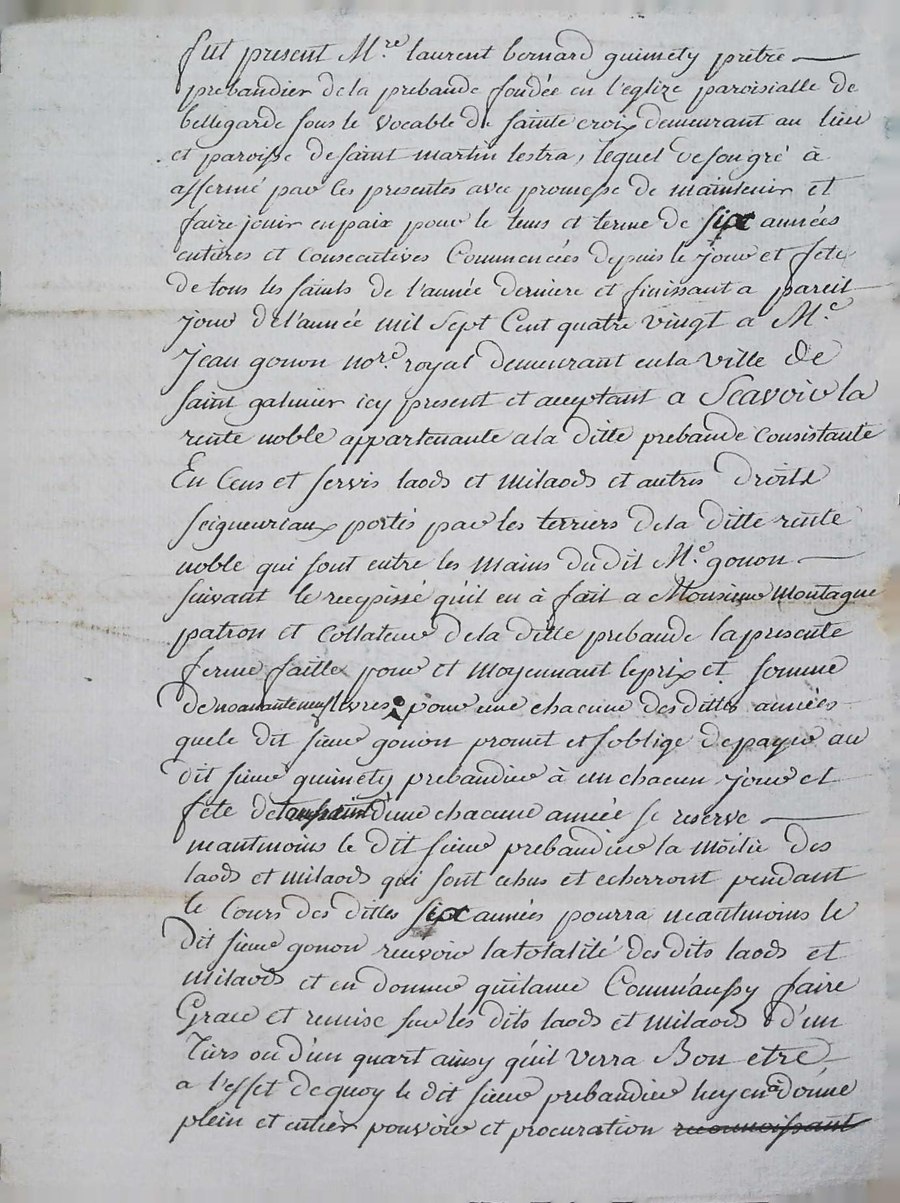 fut present M.re laurent bernard guimety prêtre
prebandier de la prebande fondée en l'eglize paroisialle de
bellegarde sous le vocable de sainte croix demeurant au lieu
et paroisse de saint martin lestra, lequel de son gré à
affermé par les presentes avec promesse de maintenir et
faire jouir en paix pour le tems et terme de six années
entières et consecutives Commencées depuis le jour et fête
de tous les saints de l'année derniere et finissant a pareil
jour de l'année mil sept Cent quatre vingt a M.e
Jean gonon no.re royal demeurant en la ville de
saint galmier icy present et acceptant a Scavoir la
rente noble appartenante a la ditte prebande Consistante
En Cens et servis laods et milaods et autres droits
seigneuriaux portés par les terriers de la ditte rente
noble qui sont entre les mains du dit M.e gonon
suivant le recepissé qu'il en à fait a Monsieur Montagne
patron et Collateur de la ditte prebande la presente
ferme faitte pour et moyennant le prix et somme
de nonante neuf livres pour une chacune des dittes années
que le dit sieur gonon promet et s'oblige de payer au
dit sieur guimety prebandier à un chacun jour et
fête de toussaint d'une chacune année se reserve
neantmoins le dit sieur prebandier la moitié des
laods et milaods qui sont echus et echerront pendant
le Cours des dittes six années pourra neantmoins le
dit sieur gonon recevoir la totalité des dits laods et
milaods et en donner quitance Comm'aussy faire
Grace et remise sur les dits laods et milaods d'un
Tiers ou d'un quart ainsy qu'il verra Bon etre
a l'effet de quoy le dit sieur prebandier luy en a donné
plein et entier pouvoir et procuration reconnoissant